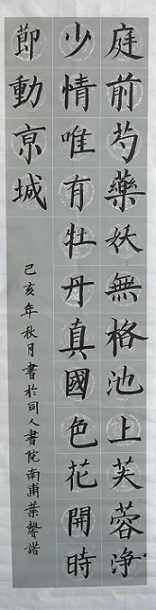 庭前芍藥妖無格池上芙蓉淨
少情唯有牡丹真國色花開時
節動京城
己亥年秋月書於同人書院南浦葉馨諧